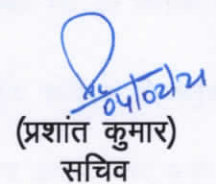 04/02/21
(प्रशांत कुमार)
सचिव